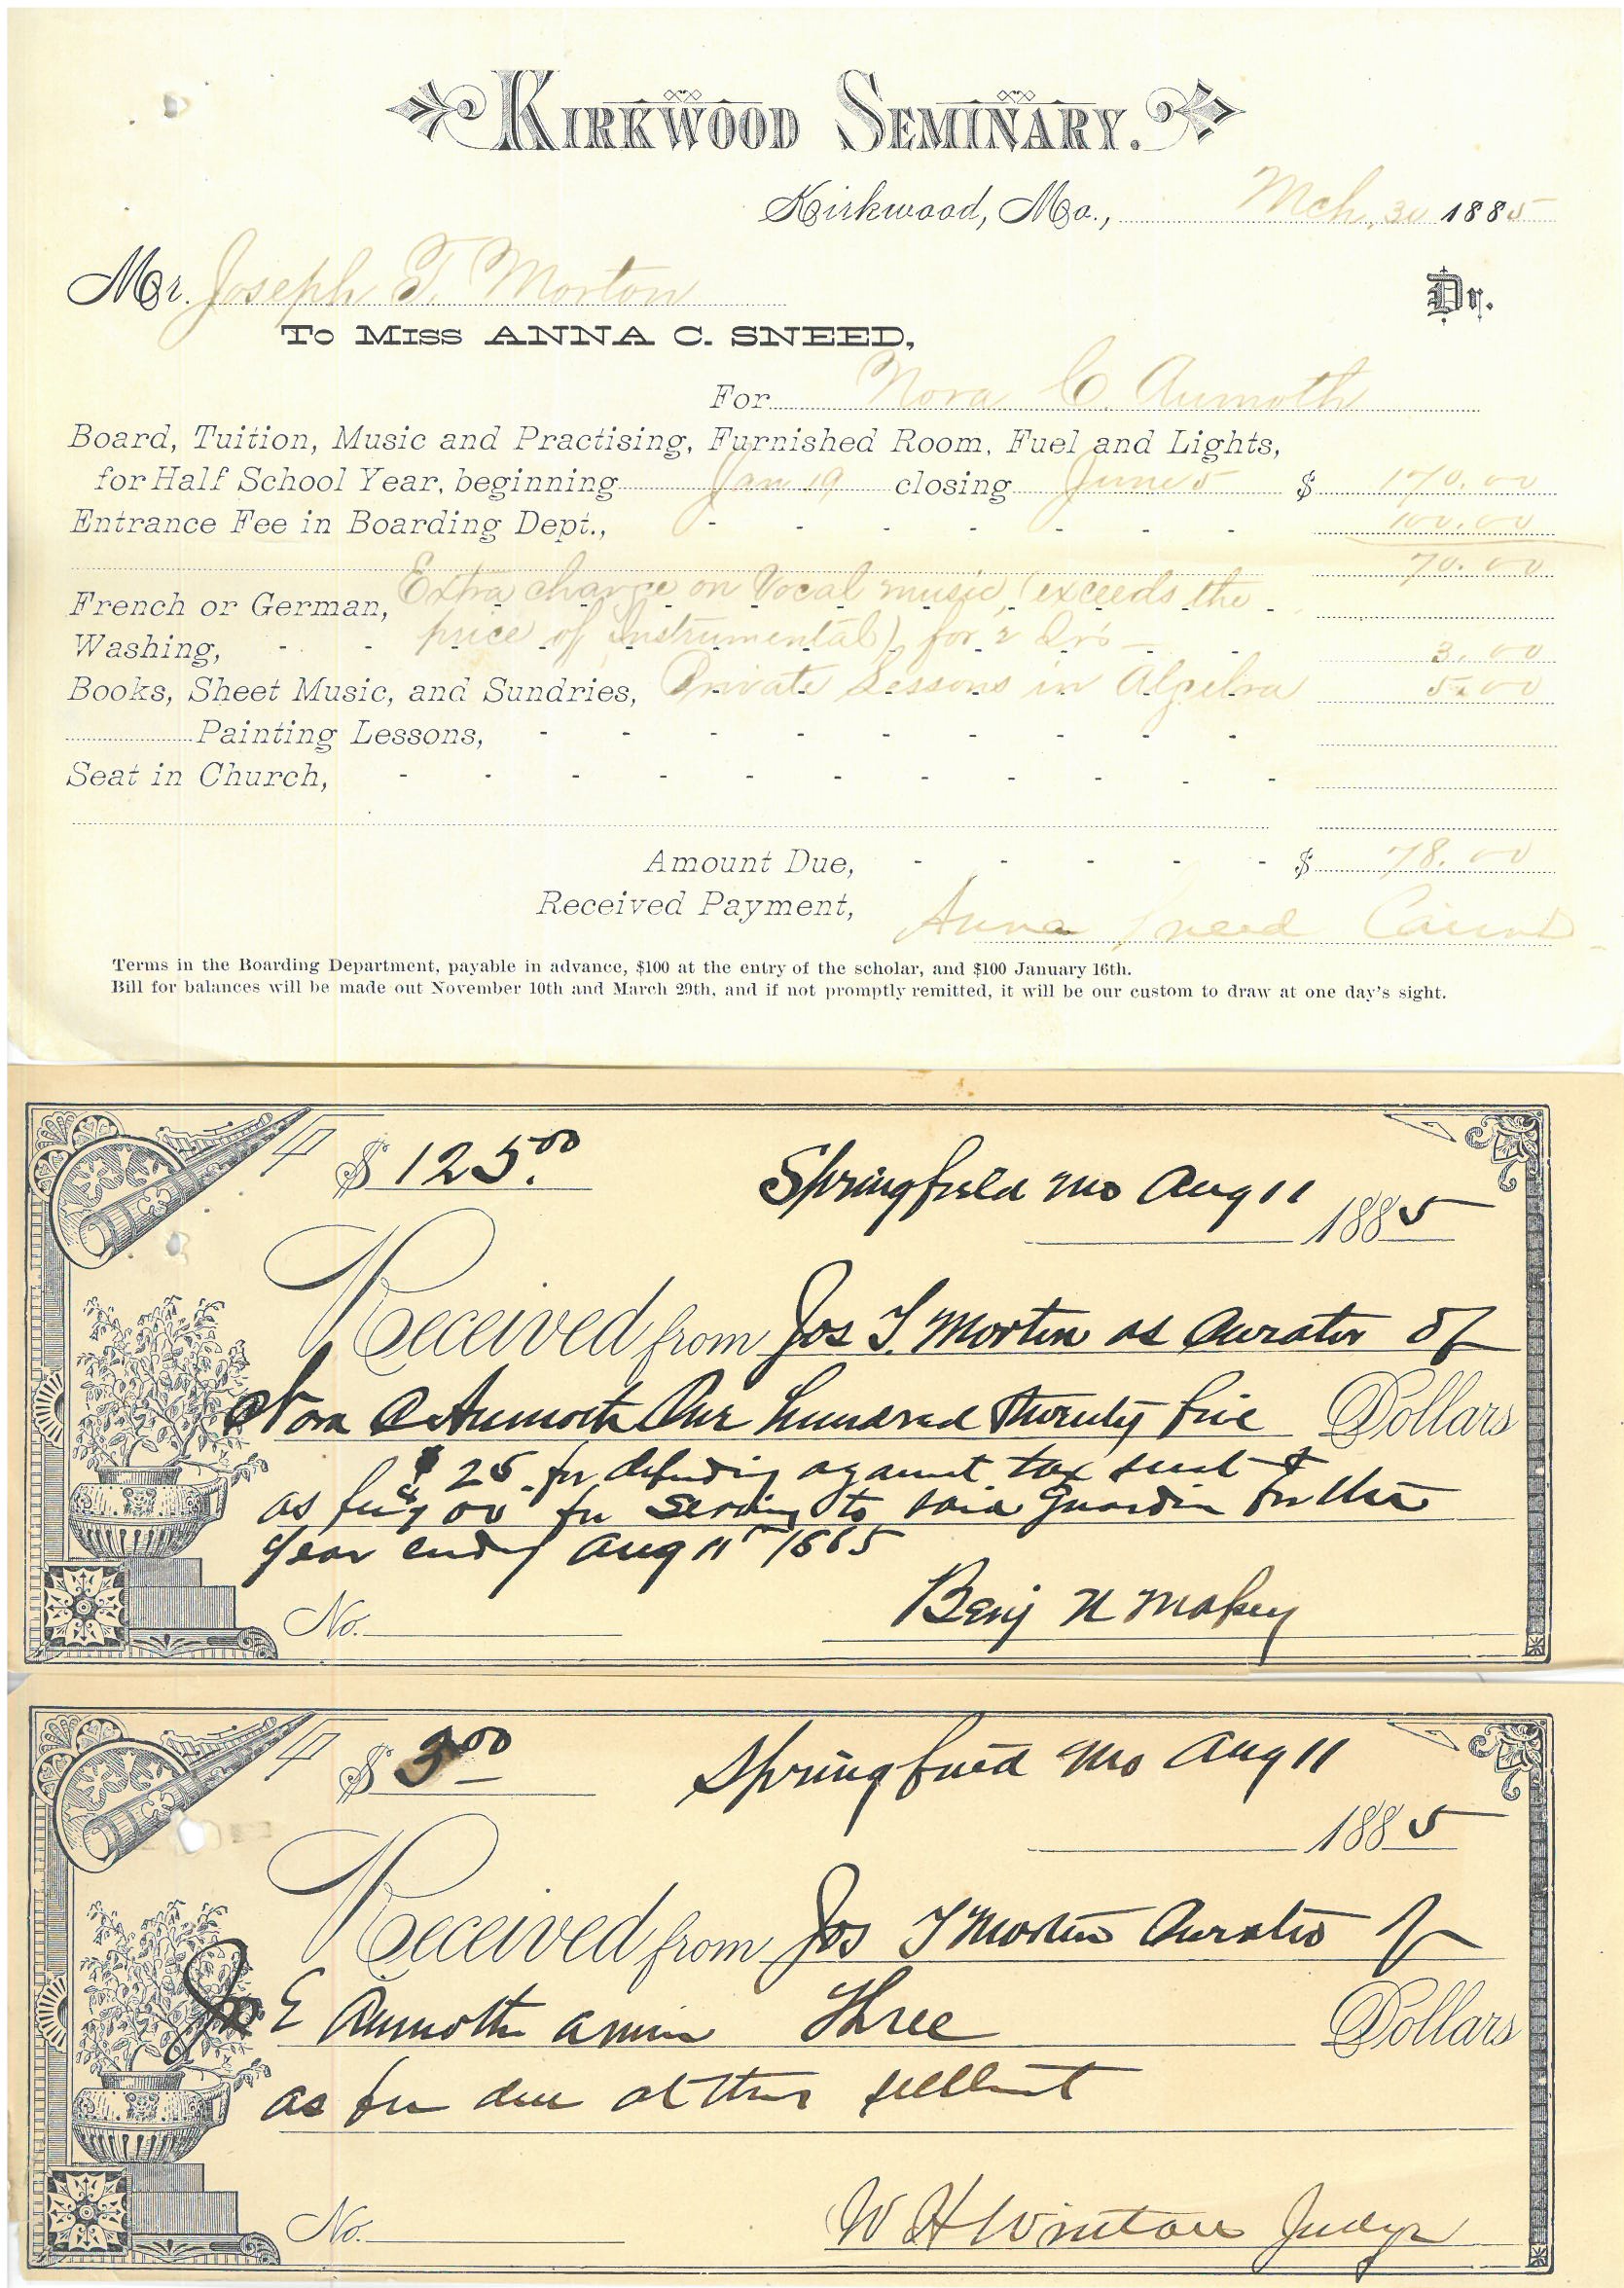 KIRKWOOD SEMINARY.
Kirkwood, Mo., Mch. 30 1885
Mr. Joseph T. Morton Dr.
To Miss ANNA C. SNEED,
For Nora C. Aumoth
Board, Tuition, Music and Practising, Furnished Room, Fuel and Lights,
for Half School Year, beginning Jan 19 closing June 5 $ 170.00
Entrance Fee in Boarding Dept., 100.00
70.00
Extra charge on Vocal music, (exceeds the
French or German,
price of instrumental) for 2 Qrs
Washing, 3.00
Books, Sheet Music, and Sundries, Private Lessons in Algebra 5.00
Painting Lessons,
Seat in Church,
Amount Due, $ 78.00
Received Payment, Anna Sneed Cairns
Terms in the Boarding Department, payable in advance, $100 at the entry of the scholar, and $100 January 16th.
Bill for balances will be made out November 10th and March 29th, and if not promptly remitted, it will be our custom to draw at one day's sight.
$ 125.00 Springfield Mo Aug 11
1885
Received from Jos T. Morton as Curator of
Nora C Aumoth One hundred Twenty five Dollars
$25 for defending against tax suit &
as fee $100 for to said Guardian for the
year endg Aug 11th 1885
No. Benj N
$ 3.00 Springfield Mo Aug 11
1885
Received from Jos T Morton Curator of
E Aumoth a minor Three Dollars
as fee due at this
No. W H Judge